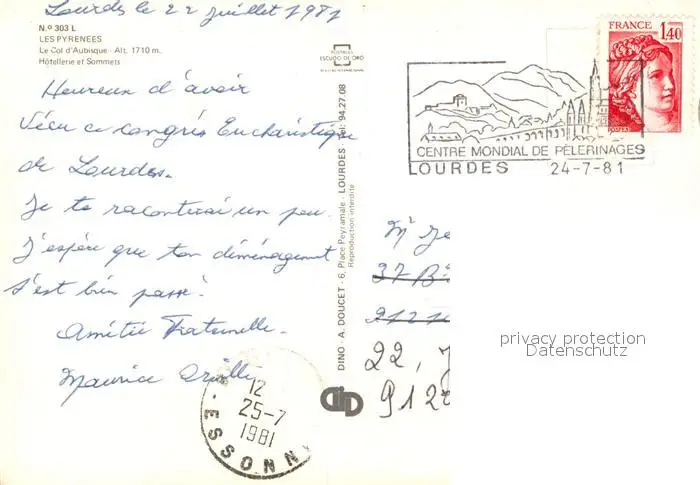 Lourdes le 22 juillet 1981
N.º 303 L
LES PYRENEES
Le Col d'Aubisque - Alt. 1710 m.
Hôtellerie et Sommets
POSTALES
ESCUDO DE ORO
Heureux d'avoir
Vécu ce congrès Eucharistique
de Lourdes.
Je te raconterai un peu.
J'espère que ton déménagement
s'est bien passé.
Amitié Fraternelle.
Maurice
DINO - A. DOUCET - 6, Place Peyramale - LOURDES - Tél. 94.27.08
Reproduction interdite
FRANCE
1,40
POSTES
CENTRE MONDIAL DE PÈLERINAGES
LOURDES 24-7-81
Mr Je
37 Bis
9121
22, J
912
privacy protection
Datenschutz
12
25-7
1981
ESSONN